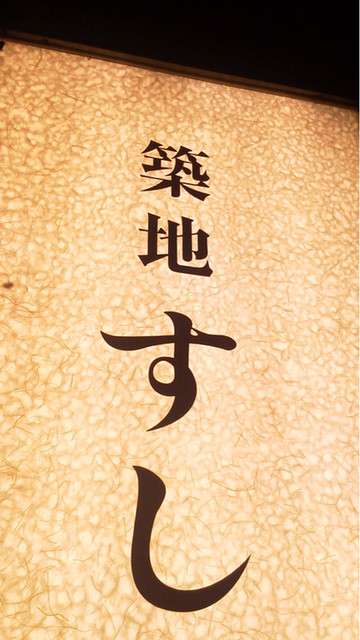 築地すし